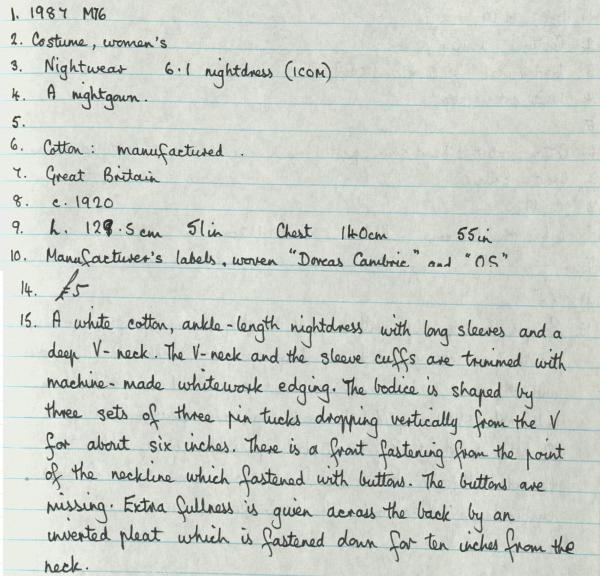 1. 1987 M76
2. Costume, women's
3. Nightwear 6.1 nightdress (ICOM)
4. A nightgown.
5.
6. Cotton: manufactured.
7. Great Britain
8. c. 1920
9. h. 129.5cm 51in Chest 140cm 55in
10. Manufacturer's labels, woven "Dorcas Cambric" and "OS"
14. £5
15. A white cotton, ankle-length nightdress with long sleeves and a
deep V-neck. The V-neck and the sleeve cuffs are trimmed with
machine-made whitework edging. The bodice is shaped by
three sets of three pin tucks dropping vertically from the V
for about six inches. There is a front fastening from the point
of the neckline which fastened with buttons. The buttons are
missing. Extra fullness is given across the back by an
inverted pleat which is fastened down for ten inches from the
neck.